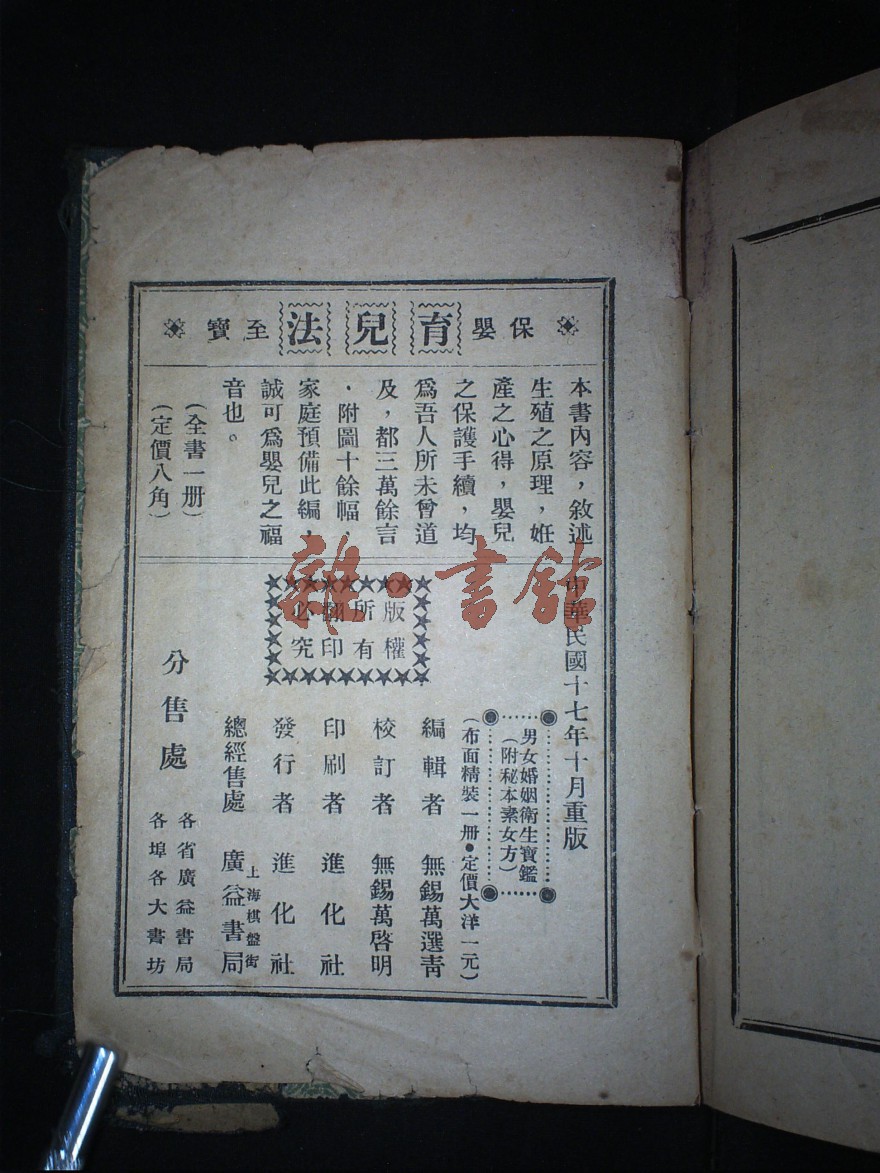 保嬰育兒法至寶
本書內容，敘述
生殖之原理，姙
產之心得，嬰兒
之保護手續，均
爲吾人所未曾道
及，都三萬餘言
．附圖十餘幅．
家庭預備此編，
誠可爲嬰兒之福
音也。
（全書一册）
（定價八角）
雜·書館
中華民國十七年十月重版
男女婚姻衛生寶鑑
（附秘本素女方）
（布面精裝一册●定價大洋一元）
版權
所有
翻印
必究
編輯者 無錫萬選青
校訂者 無錫萬啓明
印刷者 進化社
發行者 進化社
總經售處 上海棋盤街廣益書局
分售處
各省廣益書局
各埠各大書坊